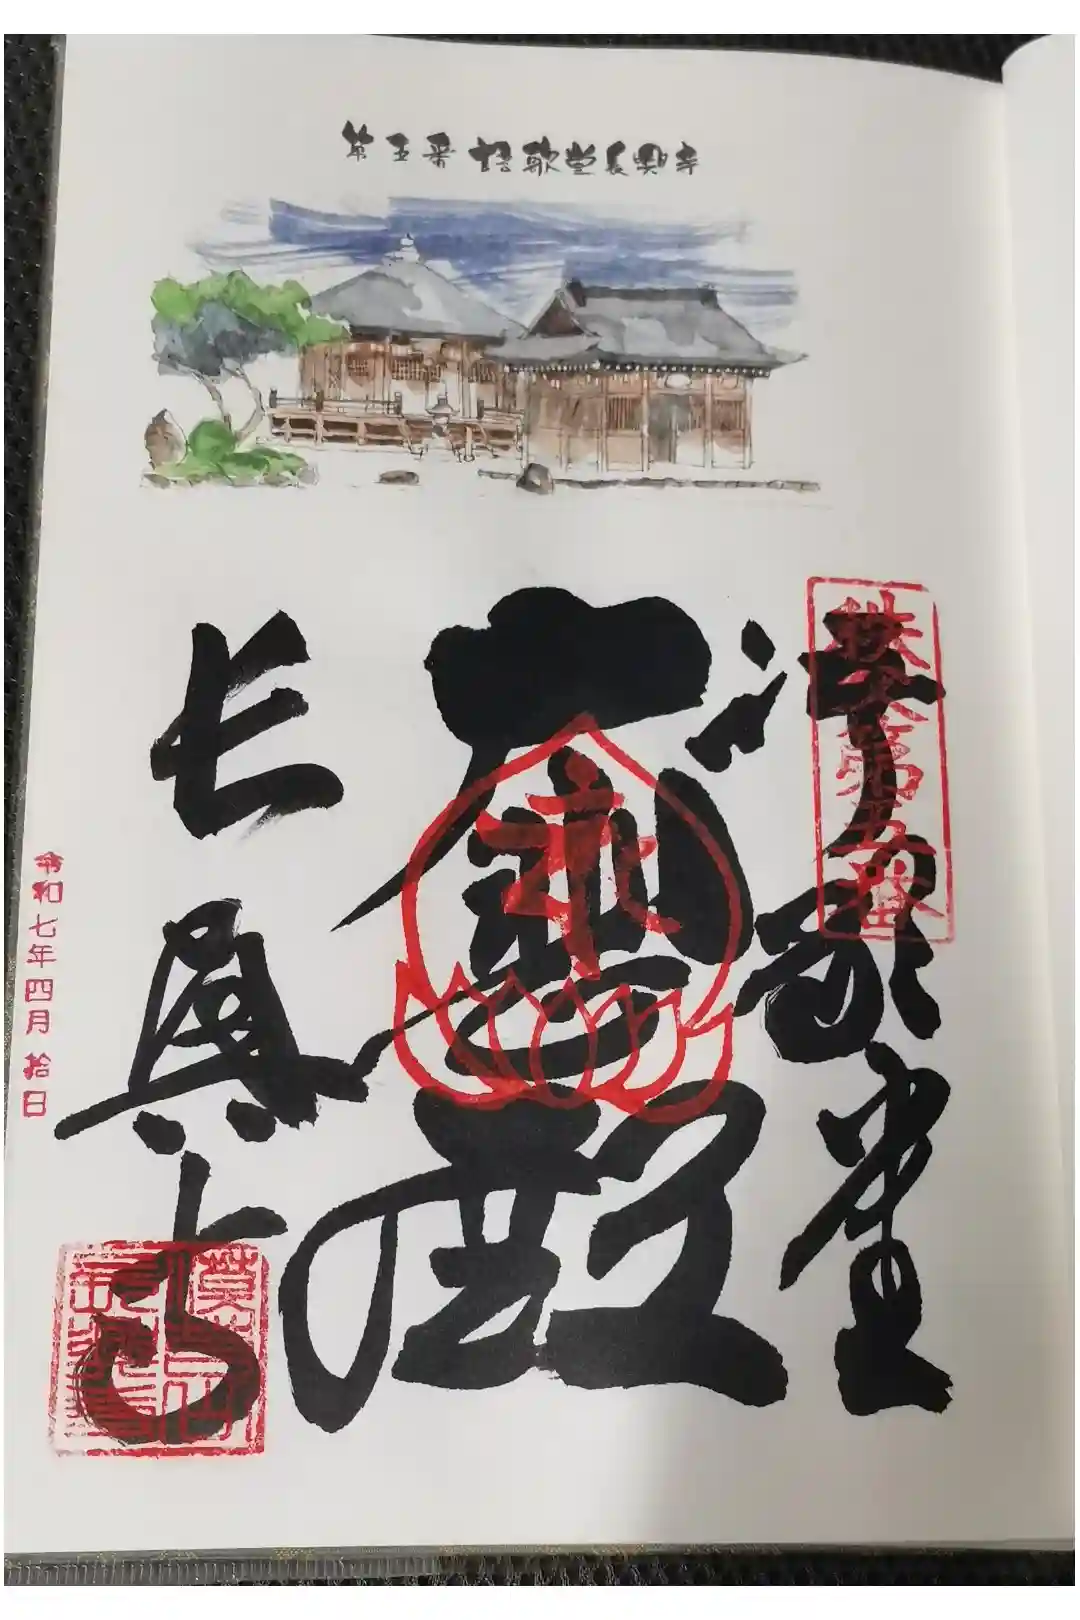 第五番 語歌堂長興寺
秩父第五番
語歌堂
大悲殿
長興寺
令和七年四月拾日